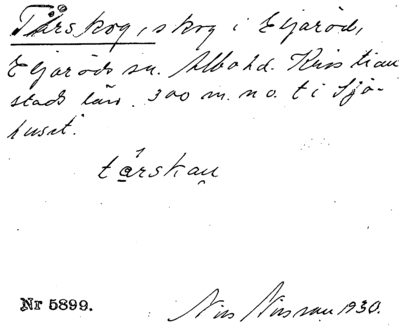 Tårskog, skog i Eljaröd,
Eljaröds sn. Albo hd. Kristian-
stads län. 300 m. n. o. t i Sjö-
huset.
tårskau
Nr 5899. Nils Nilsson 1930.